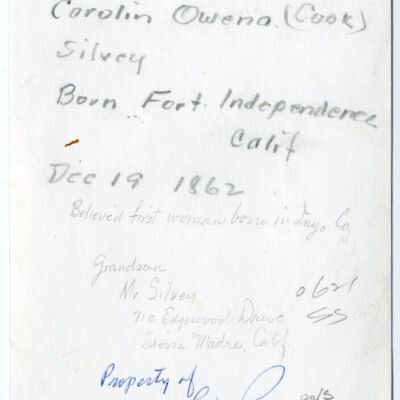 Carolin Owena (Cook)
Silvey
Born Fort Independence
Calif
Dec 19 1862
Believed first woman born in Inyo Co.
Grandson
Mr. Silvey
710 Edgewood Drive
Sierra Madre, Calif.
0621
SS
Property of